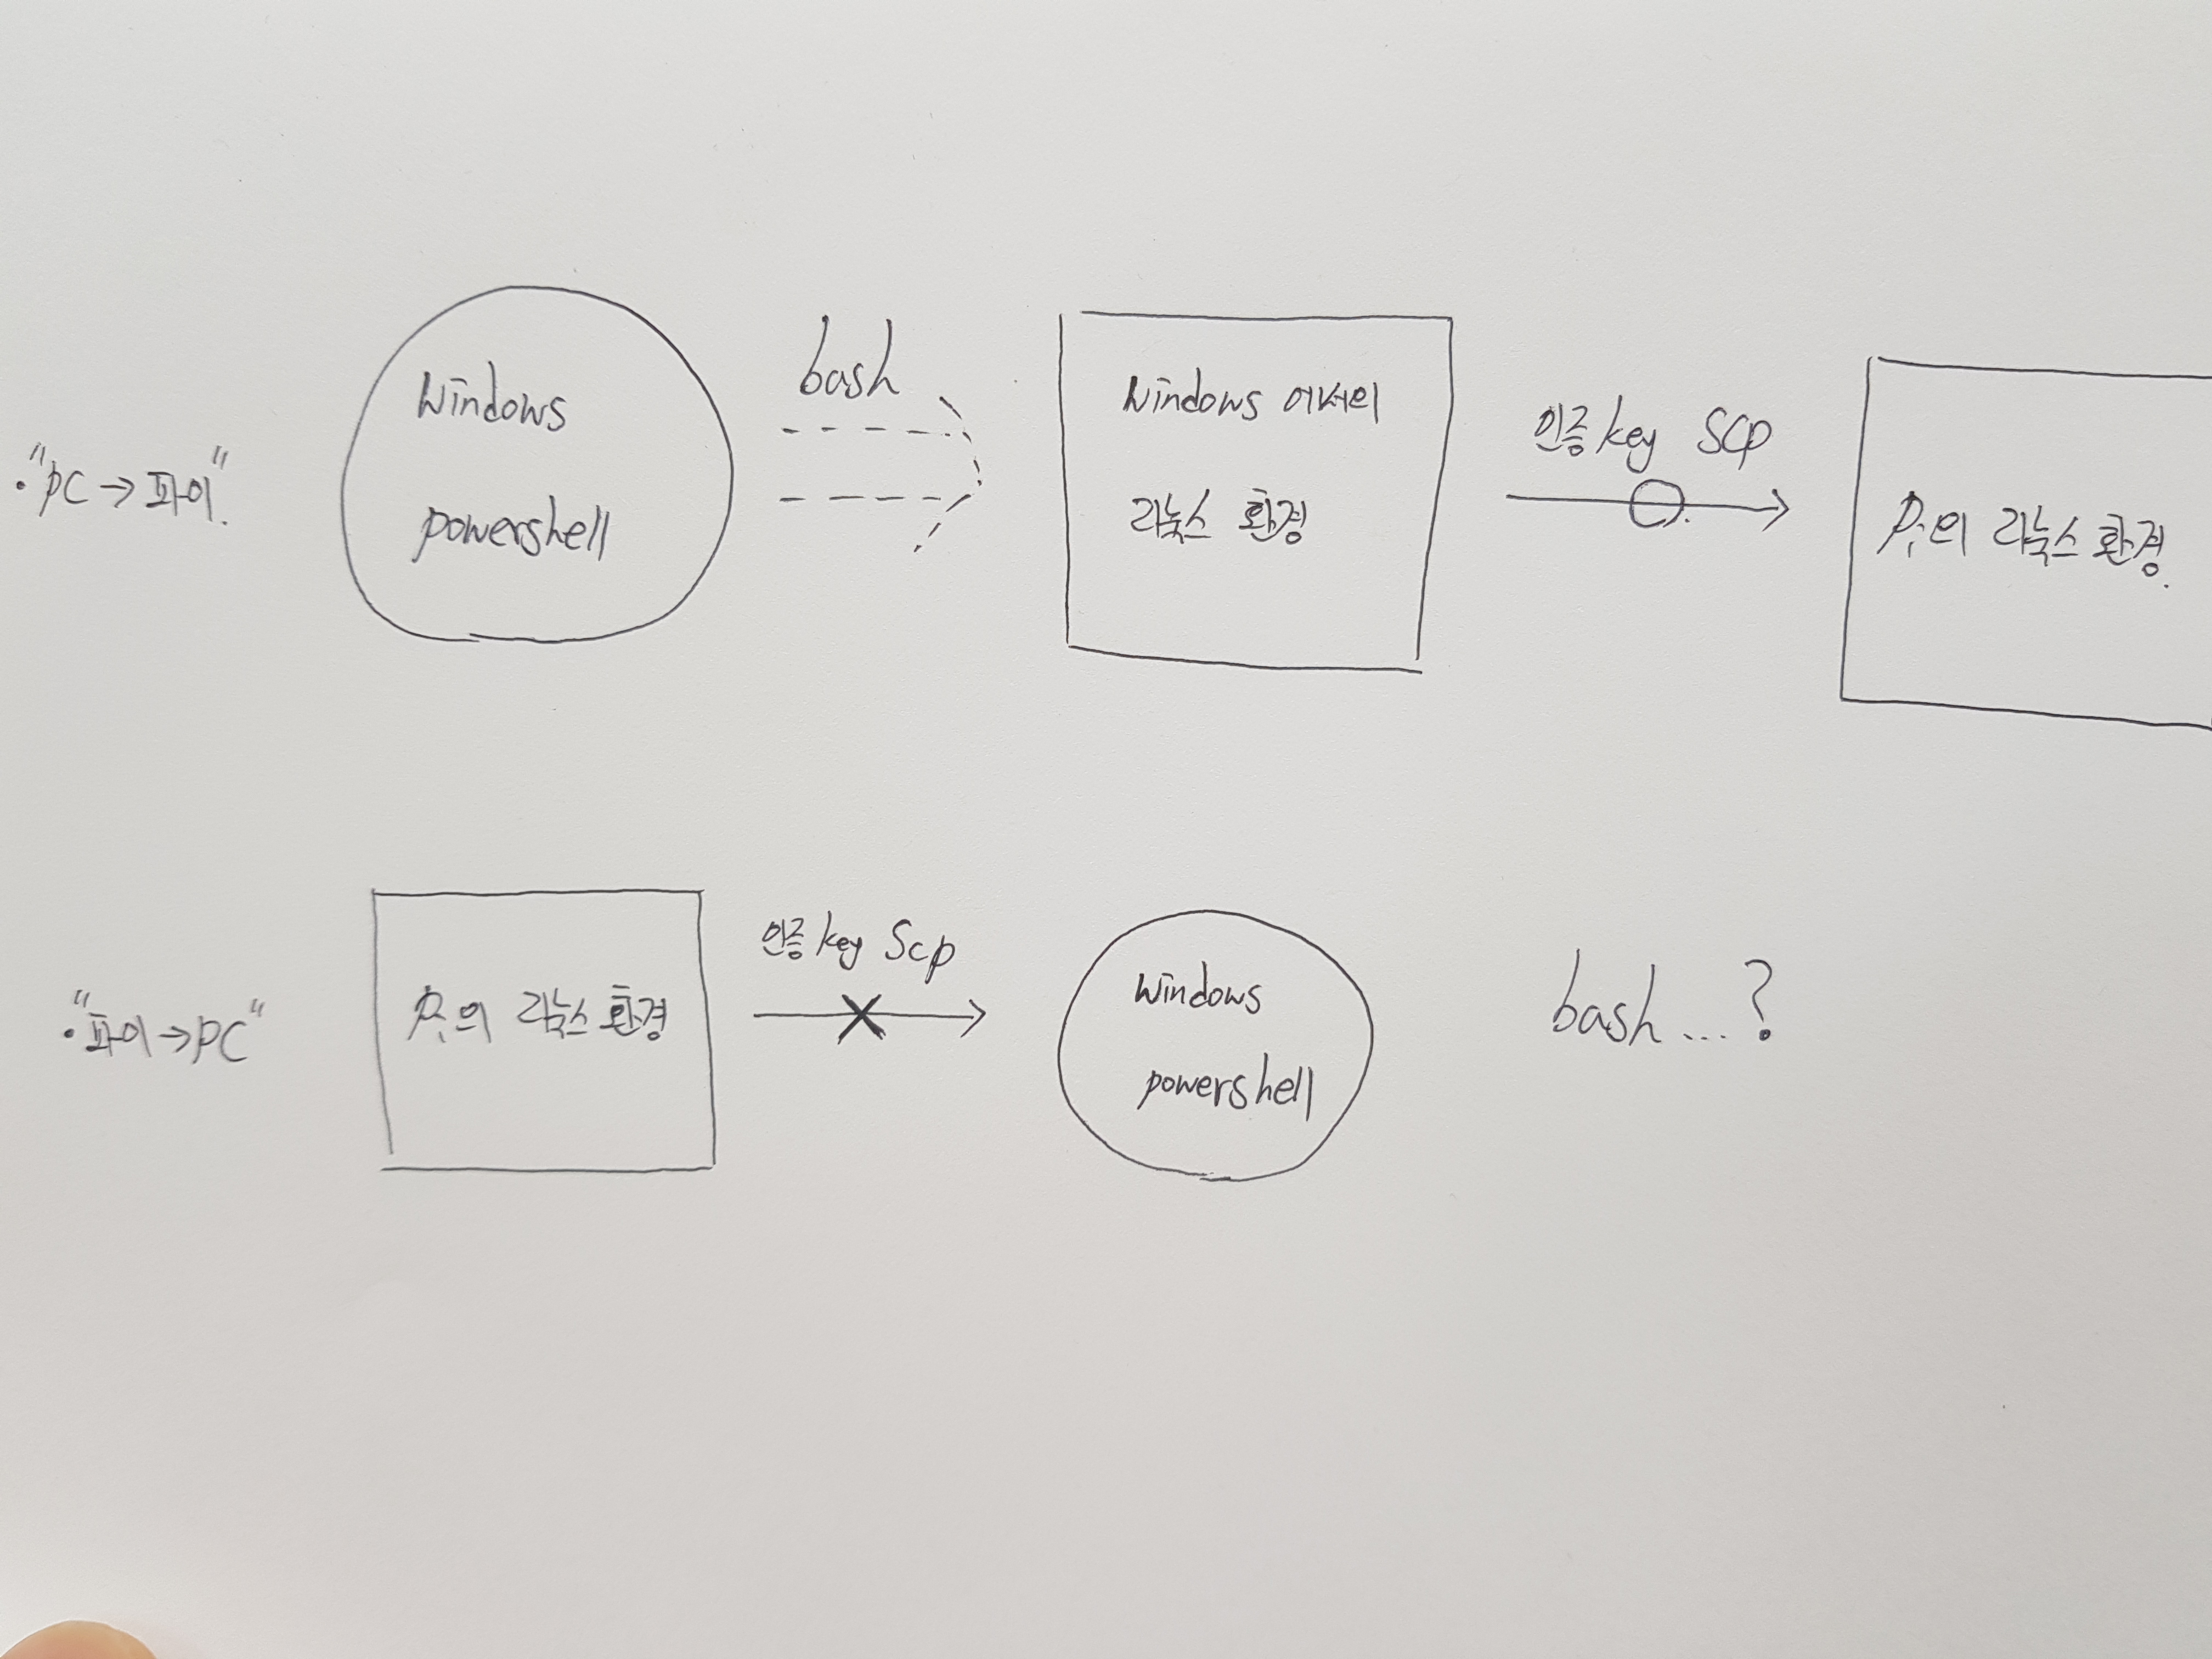 · "PC → 파이".
Windows
powershell
bash
Windows 에서의
리눅스 환경
인증 key SCP
Pi의 리눅스 환경.
· "파이 → PC"
Pi의 리눅스 환경
인증 key Scp
Windows
powershell
bash ...?